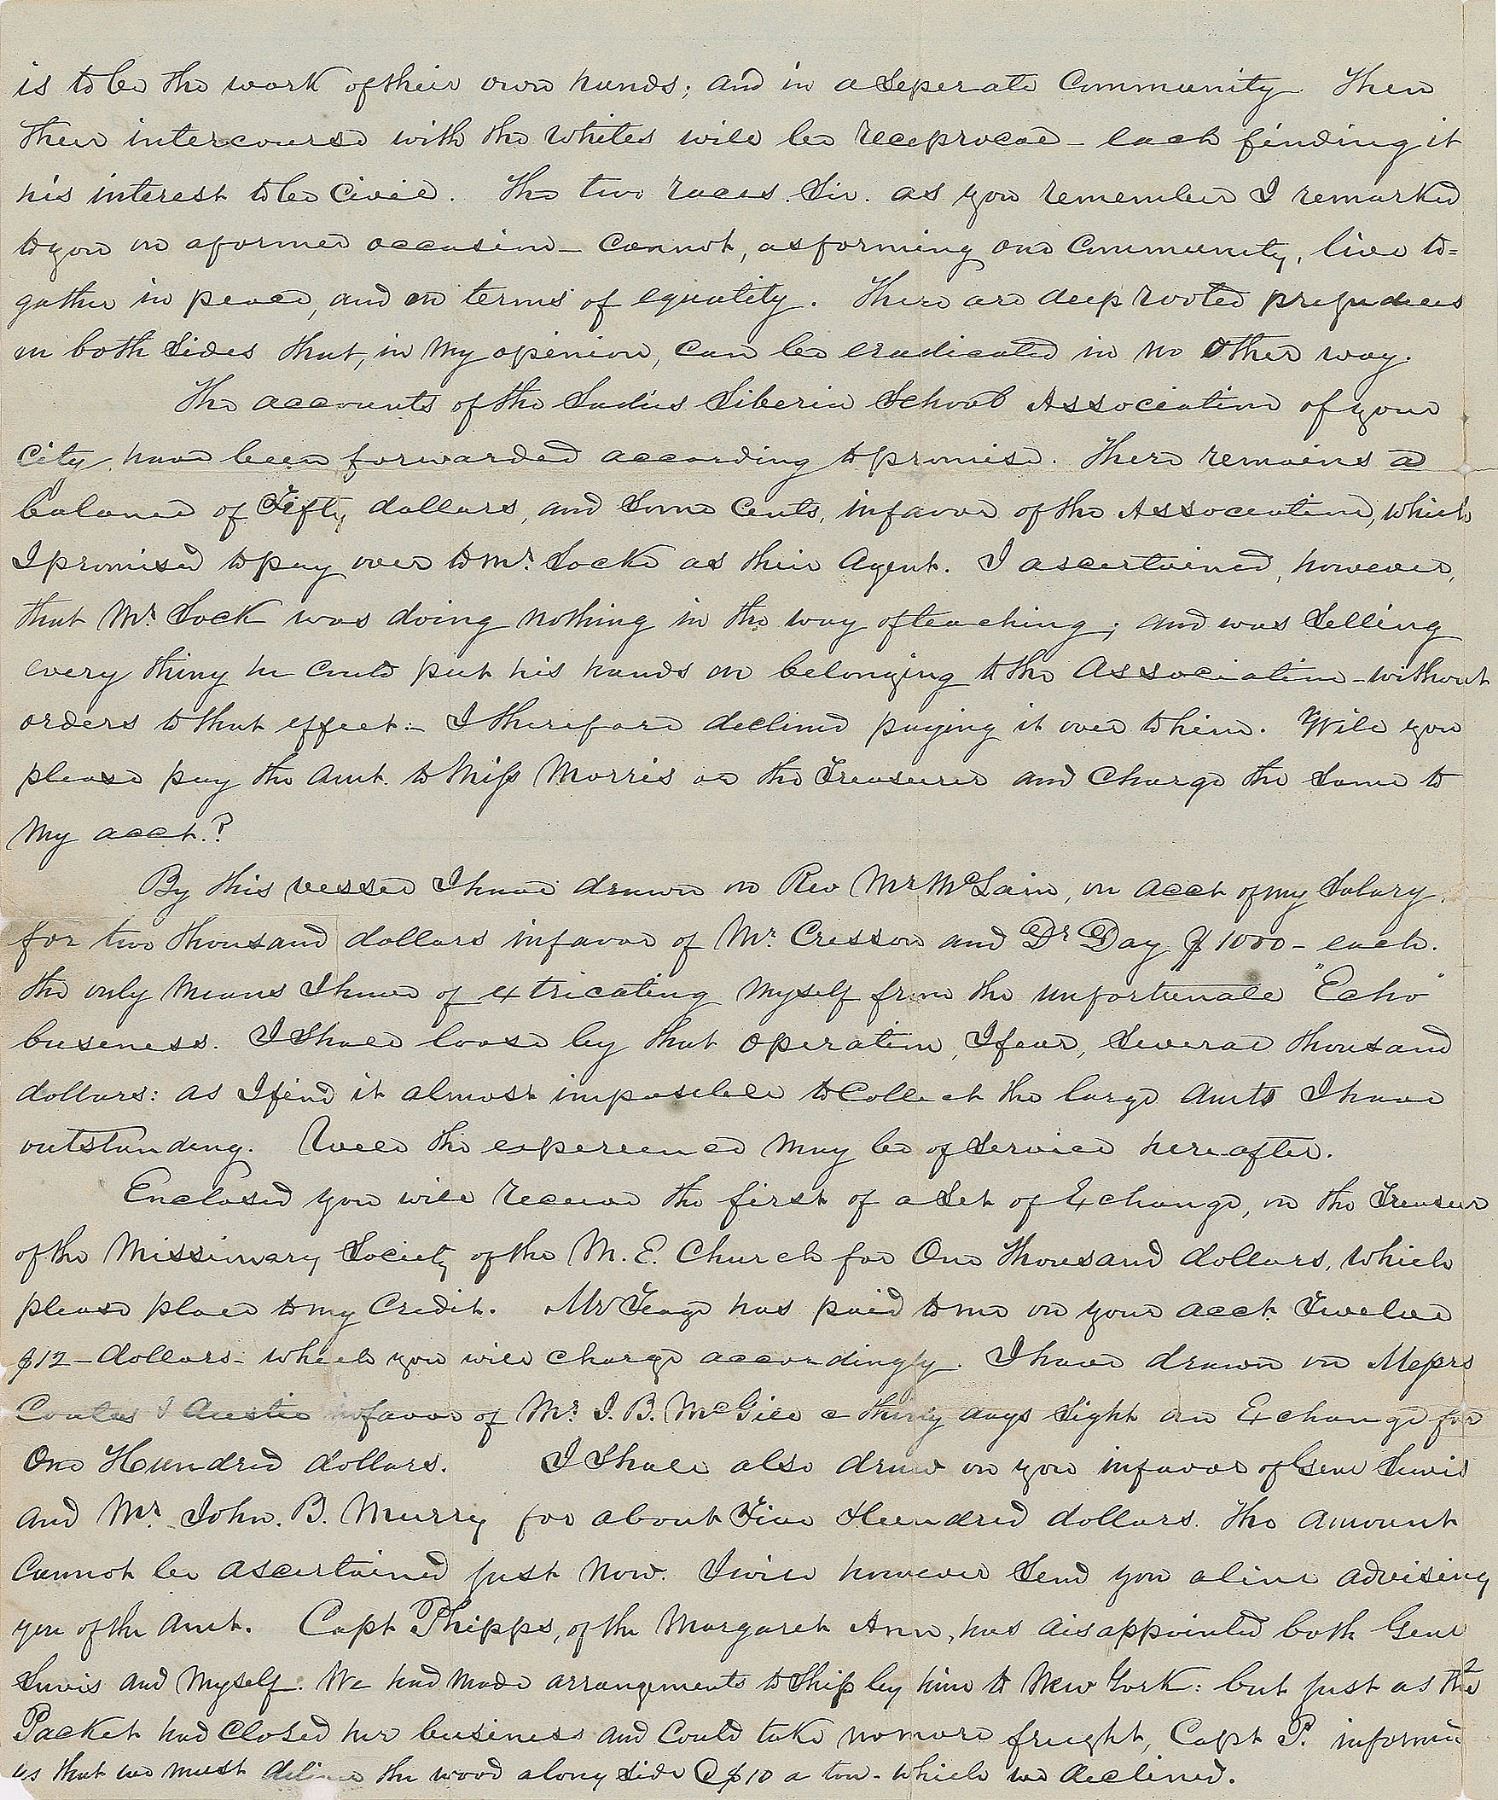 is to be the work of their own hands; and in a Seperate Community. Then
their intercourse with the whites will be reciprocal – each finding it
his interest to be Civil. The two races Sir. as you remember I remarked
to you on a former occasion – Cannot, as forming one Community, live to=
gather in peace, and on terms of equality. There are deep rooted prejudices
on both Sides that, in My opinion, can be eradicated in no Other way.
The accounts of the Ladies Liberia School Association of your
City, have been forwarded according to promise. There remains a
balance of Fifty dollars, and Some Cents, in favor of the Association, which
I promised to pay over to Mr. Locke as their Agent. I ascertained, however,
that Mr. Lock was doing nothing in the way of teaching; and was Selling
every thing he Could put his hands on belonging to the Association – without
orders to that effect:– I therefore declined paying it over to him. Will you
please pay the Amt. to Miss Morris or the Treasurer and Charge the Same to
My acct.?
By this vessel I have drawn on Rev Mr McLain, on acct of my Salary.
for two thousand dollars in favor of Mr. Cresson and Dr Day $1000– each.
the only Means I have of extricating Myself from the unfortunate "Echo"
buseness. I Shall loose by that operation, I fear, Several thousand
dollars: as I find it almost impossible to Collect the large Amts I have
outstanding. Well the experience May be of Service hereafter.
Enclosed you will receive the first of a Set of Exchange, on the Treasurer
of the Missionary Society of the M. E. Church for One thousand dollars, which
please place to my Credit. Mr Teage has paid to me on your acct. Twelve
$12– dollars– which you will charge accordingly. I have drawn on Messrs
Coates & Austie in favor of Mr. I. B. McGill @ thirty days Sight an Exchange for
One Hundred dollars. I Shall also draw on you in favor of Genl Lewis
and Mr. John. B. Murry for about Five Hundred dollars. The amount
Cannot be ascertained just now. I will however Send you a line advising
you of the Amt. Capt Phipps, of the Margaret Ann, has disappointed both Genl
Lewis and Myself. We had made arrangements to Ship by him to New York: but just as the
Packet had Closed her business and Could take no more freight, Capt P. informed
us that we must deliver the wood along Side @ $10 a ton – which we declined.